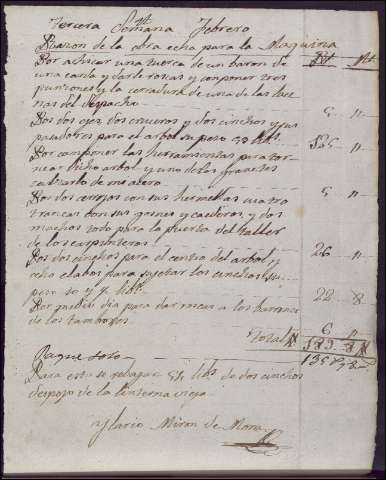 Tercera Semana Febrero
Razon de la obra echa para la Maquina
Por achicar una tuerca de un baron de
una cania y darle rosca y componer tres
punzones y la cerradura de una de las
del despacho 5 n
Por dos ojos dos crueros y dos cinchos y sus
pasadores para el arbol su peso 55 libs. n
Por componer las herramientas para tor-
near dicho arbol y uno de los
calzarlo de m acero 5 n
Por dos cerrojos con sus hermellas cuatro
trancas con sus gornes y caederos y dos
machos todo para la puerta del taller
de los carpinteros 26 n
Por dos cinchos para el centro del arbol y
ocho clabos para sujetar los cinchos su
peso 10 y ½ libs. 22 8
Por medio dia para dar rosca a los barrones
de los tambores 6 n
Total
1358 8
Pague solo
Para esto se rebajan 52 libs de dos cinchos
despojo de la linterna vieja
Ylario Miron de Mora